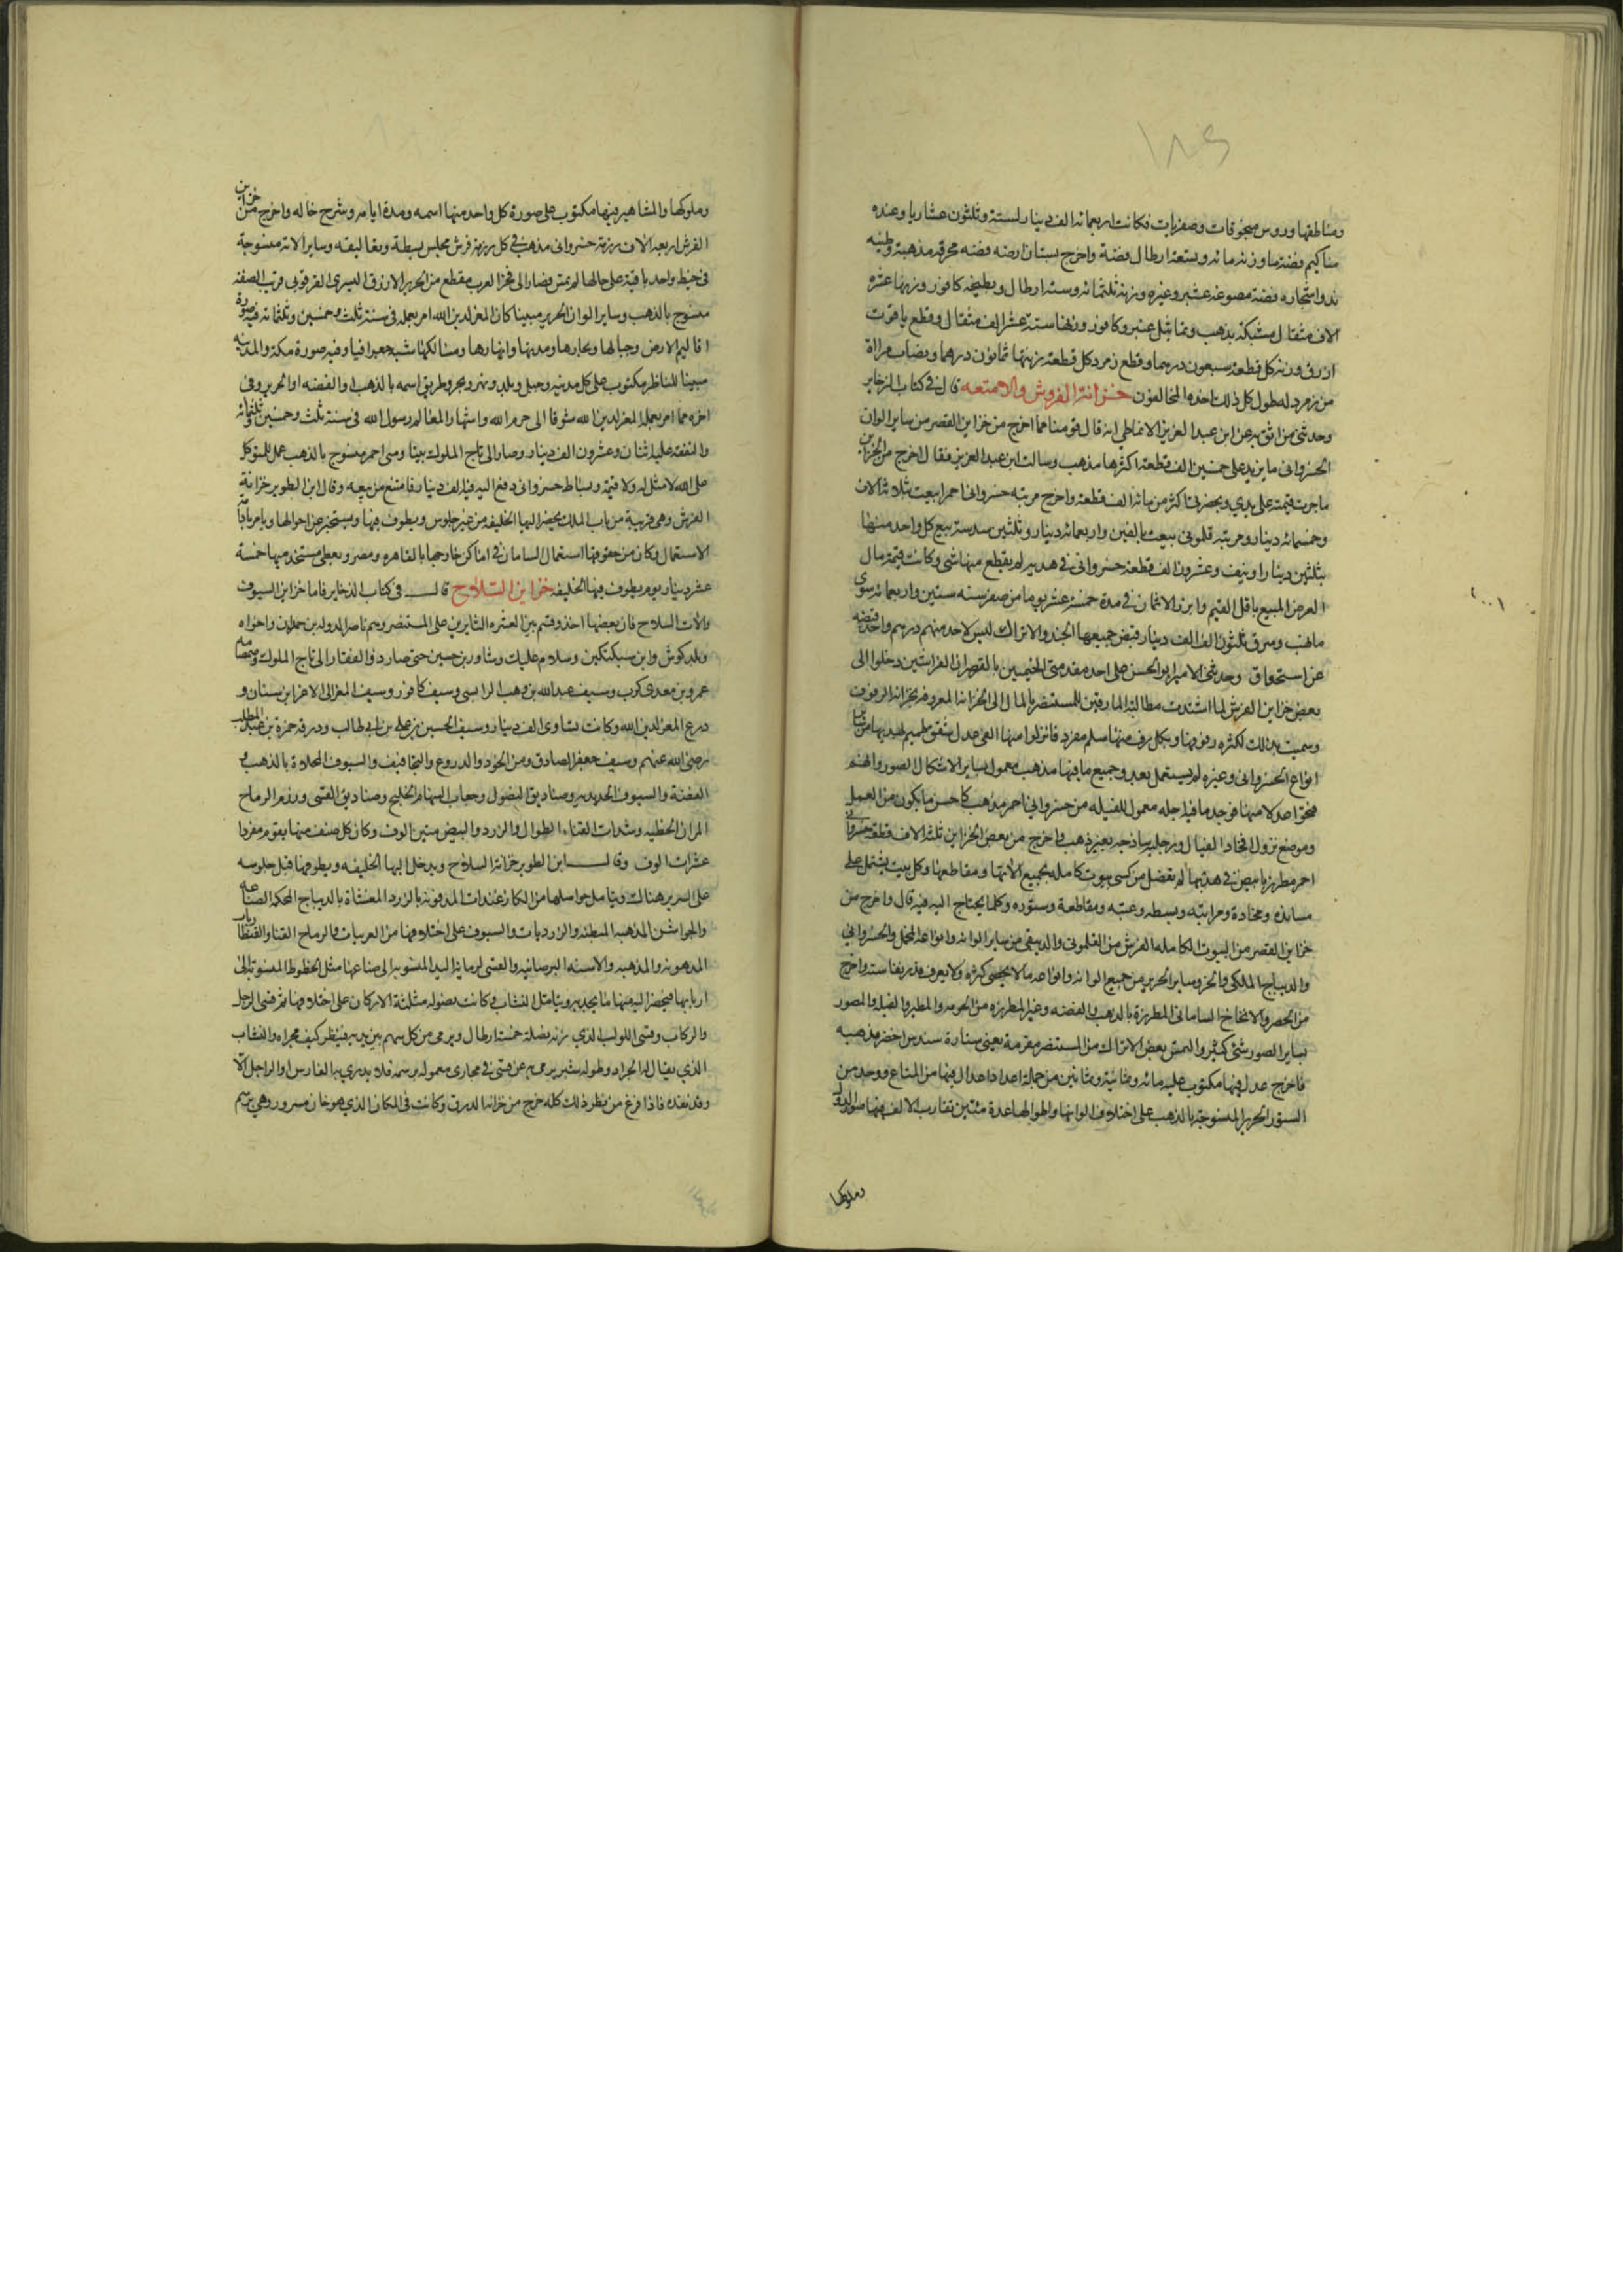 ومناطقها وروس منجوقات وصفريات فكانت اربعمائه الف دينار لستة وثلثون عشاريا وعنده
فضة ما وزنه مائه وتسعة ارطال فضة واخرج بستان ارضه فضه محرقه مذهبة وطينه
ند واشجاره فضة مصوغه عشبر وغيره وزنه ثلثمائه وستة ارطال وبطيخه كافور وزنها عشره
الاف مثقال مشبكة بذهب وتماثيل عنبر وكافور وزنها ستة عشر الف مثقال وقطع ياقوت
ازرق وزن كل قطعة سبعون درهما وقطع زمرد كل قطعة زنتها ثمانون درهما ونصاب مراة
من زمرد له طول كل ذلك اخذه المخالفون خزانة الفروش والامتعه قال في كتاب الزخاير
وحدثني من اثق به عن ابن عبد العزيز الانماطي انه قال قومنا مما اخرج من خزاين القصر من ساير الوان
الخسرواني ما يزيد على خمسين الف قطعة اكثرها مذهب وسالت ابن عبد العزيز فقال اخرج من الخزاين
ما جرت قيمته على يدي وبحضرتي اكثر من مائة الف قطعة واخرج مرتبه خسرواني احمرا بيعت بثلاثة الاف
وخمسمائه دينار ومرتبه قلموني بيعت بالفين واربعمائه دينار وثلثين سندسيه بيع كل واحد منها
بثلثين دينارا ونيف وعشرون الف قطعة خسرواني في هديه لم يقطع منها شي وكانت قيمة مال
العرض المبيع باقل القيم وابرز الاثمان في مدة خمسة عشر يوما من صفر سنه ستين واربعمائه سوى
ما نهب وسرق ثلثون الف الف دينار قبض جميعها الجند والاتراك ليس لاحد منهم درهم واحد قبضه
عن استحقاق وحدثني الامير ابو الحسن على احد مقدمي الخيميين بالقصر ان الفراشين دخلوا الى
بعض خزاين الفرش لما اشتدت مطالبة المارقين للمستنصر بالمال الى الخزانة المعروفه بخزانة الرفوف
وسميت بذلك لكثره رفوفها وبكل رف منها سلم مفرد فانزلوا منها الفي عدل شقق طميم بهدبها من ساير
انواع الخسرواني وغيره لم يستعمل بعد وجميع ما فيها مذهب معمول بساير الاشكال والصور وانهم
فتحوا عدلا منها فوجد ما فيه اجله معمول للفيله من خسرواني احمر مذهب كاحسن ما يكون من العمل
وموضع نزول افخاذ الفيل ورجليه ساذجه بغير ذهب واخرج من بعض الخزاين ثلثة الاف قطعة خسرواني
احمر مطرز بابيض في هدبها لم يفضل من كسي بيوت كامله بجميع الاتها ومقاطعها وكل بيت يشتمل على
مسانده ومخاده ومراتبه وبسطه وعتبه ومقاطعة وستوره وكلما يحتاج اليه فيه قال واخرج من
خزاين القصر من البيوت الكامله الفرش من القلموني والدبيقي من ساير الوانه وانواعه المخمل والخسرواني
والديباج الملكي والخز وساير الحرير من جميع الوانه وانواعه ما لا يحصى كثره ولا يعرف قدر نفاسته واخرج
من الحصر والانخاخ السامان المطرزة بالذهب والفضه وغير المطرزه من الحومه والمطير والفيله والمصور
بساير الصور شئ كثير والتمس بعض الاتراك من المستنصر مقرمة يعني ستارة سندس اخضر مذهبه
فاخرج عدل فيها مكتوب عليه مائه وثمانية وثمانين من جملة اعداد اعدال فيها من المتاع ووجد من
الستور الحرير المنسوجة بالذهب على اختلاف الوانها واطوالها عدة مئتين تقارب الالف فيها صور الدول
وملوكها
وملوكها والمشاهير فيها مكتوب على صورة كل واحد منها اسمه ومدة ايامه وشرح حاله واخرج من خزاين
الفرش اربعة الاف رزمة خسرواني مذهب في كل رزمة فرش مجلس ببسطه وتعاليقه وساير الاته منسوجة
في خيط واحد باقية على حالها لم تمس فصار الى فخر العرب مقطع من الحرير الازرق التستري القرقوبي غريب الصفه
منسوج بالذهب وساير الوان الحرير مبينا كان المعز لدين الله امر بعمله في سنة ثلث وخمسين وثلثمائه فيه صورة
اقاليم الارض وجبالها وبحارها ومدنها وانهارها ومسالكها شبه جعرافيا وفيه صورة مكة والمدينه
مبينا للناظر مكتوب على كل مدينه وجبل وبلد ونهر وبحر وطريق اسمه بالذهب او الفضه او الحرير وفي
اخره مما امر بعمله المعز لدين الله شوقا الى حرم الله واشهارا لمعالم رسول الله في سنة ثلث وخمسين وثلثمائه
والنفقة عليه اثنان وعشرون الف دينار وصار الى تاج الملوك بيتا ارمني احمر منسوج بالذهب عمل للمتوكل
على الله لا مثل له ولا قيمة وبساط خسرواني دفع اليه فيه الف دينار فامتنع من بيعه وقال ابن الطوير خزانة
الفرش وهي قريبة من باب الملك يحضر اليها الخليفه من غير جلوس ويطوف فيها ويستخبر عن احوالها ويامر بادامة
الاستعمال وكان من حقوقها استعمال السامان في اماكن خارجها بالقاهره ومصر ويعطى مستخدميها خمسة
عشر دينار يوم يطوف فيها الخليفه خزاين السلاح قال في كتاب الذخاير فاما خزاين السيوف
والات السلاح فان بعضها اخذ وقسم بين العشره الثايرين على المستنصر وهم ناصر الدوله بن حمدان واخواه
وبلدكوش وابن سبكتكين وسلام عليك وشاور بن حسين حتى صار ذو الفقار الى تاج الملوك وصمصامه
عمرو بن معدي كرب وسيف عبد الله بن وهب الراسبي وسيف كافور وسيف المعز الى الاعز ابن سنان و
درع المعز لدين الله وكانت تساوي الف دينار وسيف الحسين بن علي بن ابي طالب ودرقه حمزة بن عبد المطلب
رضي الله عنهم وسيف جعفر الصادق ومن الخود والدروع والتجافيف والسيوف المحلاة بالذهب و
الفضة والسيوف الحديديه وصناديق النصول وجعاب السهام الخلنج وصناديق القسي ورزم الرماح
المران الخطيه وشدات القناه الطوال والزرد والبيض مئين الوف وكان كل صنف منها يقوم مفردا
عشرات الوف وقال ابن الطوير خزانة السلاح ويدخل اليها الخليفه ويطوفها قبل جلوسه
على السرير هناك ويتامل حواصلها من الكازغندات المدفونه بالزرد المغشاة بالديباج المحكمه الصناعه
والجواشن المذهبه المبطنه والزرديات والسيوف على اختلافها من العربيات والرماح القنا والقنطاريات
المدهونه والمذهبه والاسنه البرصانيه والقسي لرماية اليد المنسوبه الى صناعها مثل الخطوط المنسوبة الى
اربابها فيحضر اليه منها ما يجربه ويتامل النشاب وكانت نصوله مثلثة الاركان على اختلافها ثم قسي الرجل
والركاب وقسي اللولب الذي زنة نصله خمسة ارطال ويرمى من كل سهم بين يديه فينظر كيف مجراه والنشاب
الذي يقال له الجراد وطوله شبر يرمى به عن قسي في مجاري معموله برسمه فلا يدري به الفارس او الراجل الا
وقد نفذه فاذا فرغ من نظر ذلك كله خرج من خزانة الدرق وكانت في المكان الذي هو خان مسرور وهي برسم